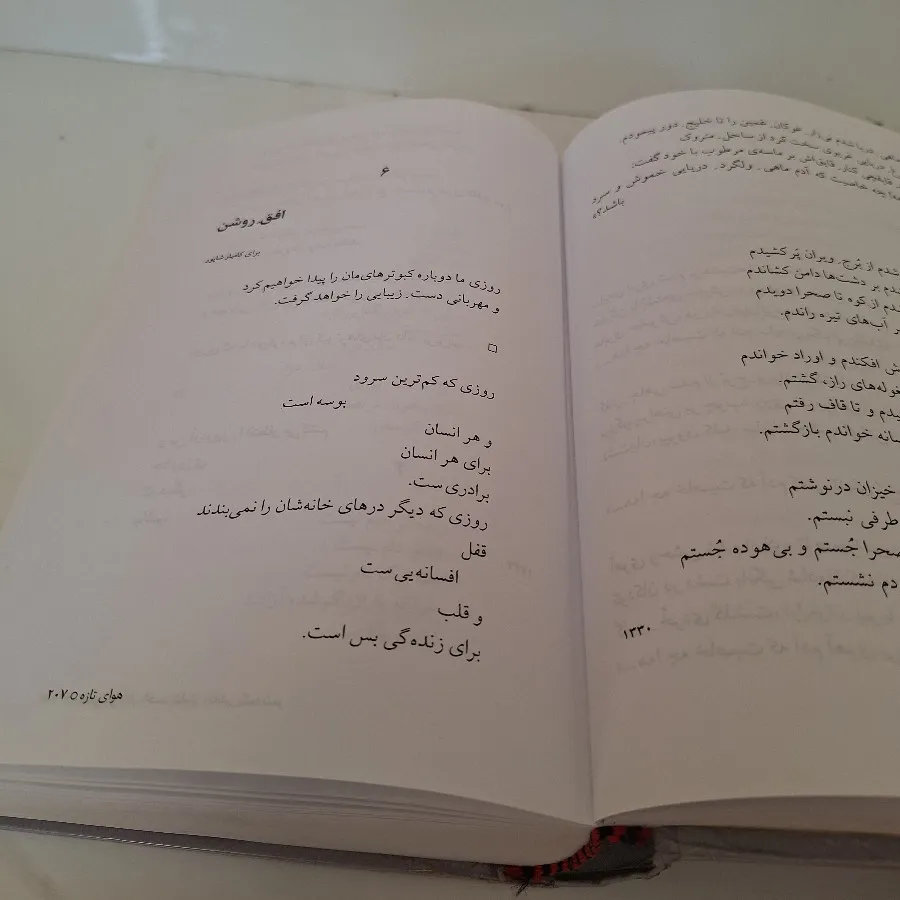 ماهی
را تا خلیج ِ دور پیمودم.
سخت کرد از ساحل ِ متروک
قایقش بر ماسه‌ی مرطوب با خود گفت:
چه خاصیت که آدم ماهی ِ ولگرد ِ دریایی خموش و سرد
باشد؟»
شدم از بُرج ِ ویران پَر کشیدم
بر دشت‌ها دامن کشاندم
از کوه تا صحرا دویدم
بر آب‌های تیره راندم.
افکندم و اوراد خواندم
راز، گشتم.
و تا قاف رفتم
خواندم بازگشتم.
خیزان درنوشتم
طرفی نبستم.
صحرا جُستم و بی‌هوده جُستم
دم نشستم.
۱۳۳۰
۶
افق ِ روشن
برای کامیار شاپور
روزی ما دوباره کبوترهای‌مان را پیدا خواهیم کرد
و مهربانی دست ِ زیبایی را خواهد گرفت.
روزی که کم‌ترین سرود
بوسه است
و هر انسان
برای هر انسان
برادری ست.
روزی که دیگر درهای خانه‌شان را نمی‌بندند
قفل
افسانه‌یی ست
و قلب
برای زنده‌گی بس است.
هوای تازه ○ ۲۰۷